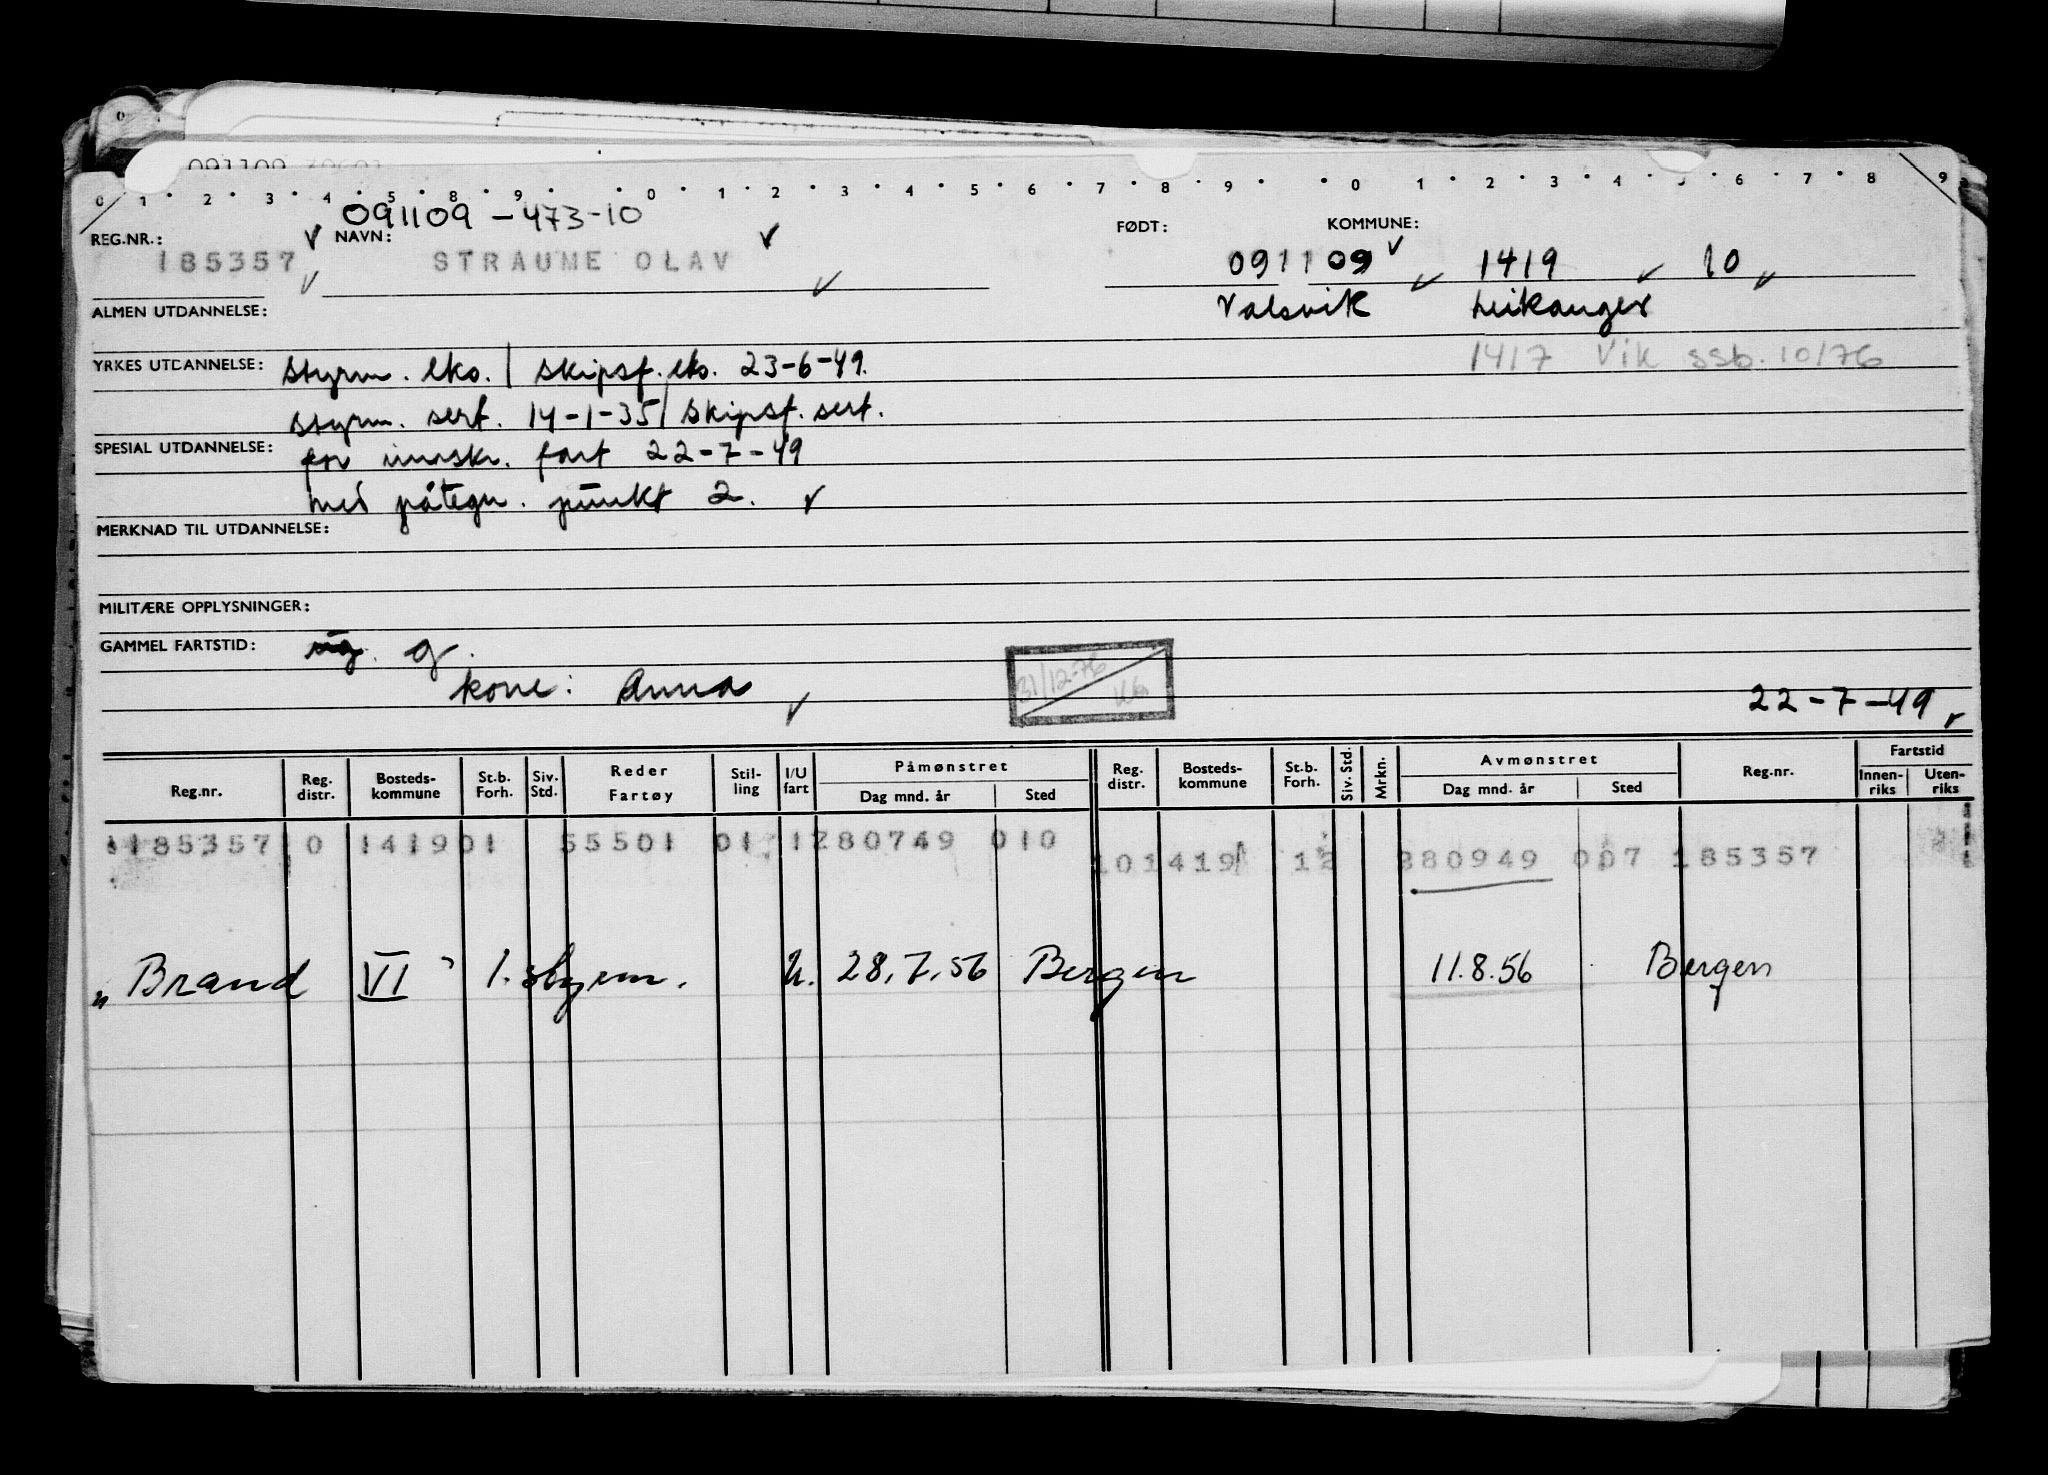 091109
0 1 2 3 4 5 6 7 8 9 0 1 2 3 4 5 6 7 8 9 0 1 2 3 4 5 6 7 8 9
091109 - 473-10
REG.NR.: NAVN: FØDT: KOMMUNE:
185357 STRAUME OLAV 091109 1419 10
ALMEN UTDANNELSE: Valsvik Leikanger
YRKES UTDANNELSE: Styrm. eks. / Skipsf. eks. 23-6-49. 1417 Vik ssb. 10/76
Styrm. sert. 14-1-35 / Skipsf. sert.
SPESIAL UTDANNELSE: for innskr. fart 22-7-49
med påtegn. punkt 2.
MERKNAD TIL UTDANNELSE:
MILITÆRE OPPLYSNINGER:
GAMMEL FARTSTID: g.
kone: Anna 31/12-76 22-7-49
Reg.nr. Reg. distr. Bosteds- kommune St.b. Forh. Siv. Std. Reder Fartøy Stil- ling I/U fart Påmønstret Dag mnd. år Sted Reg. distr. Bosteds- kommune St.b. Forh. Siv. Std. Mrkn. Avmønstret Dag mnd. år Sted Reg.nr. Fartstid Innen- riks Uten- riks
185357 0 141901 55501 01 1280749 010 101419 12 280949 007 185357
"Brand VI" 1. styrm. U. 28.7.56 Bergen 11.8.56 Bergen